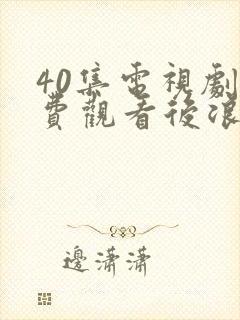 40集電視劇
費觀看後浪
邊瀟瀟